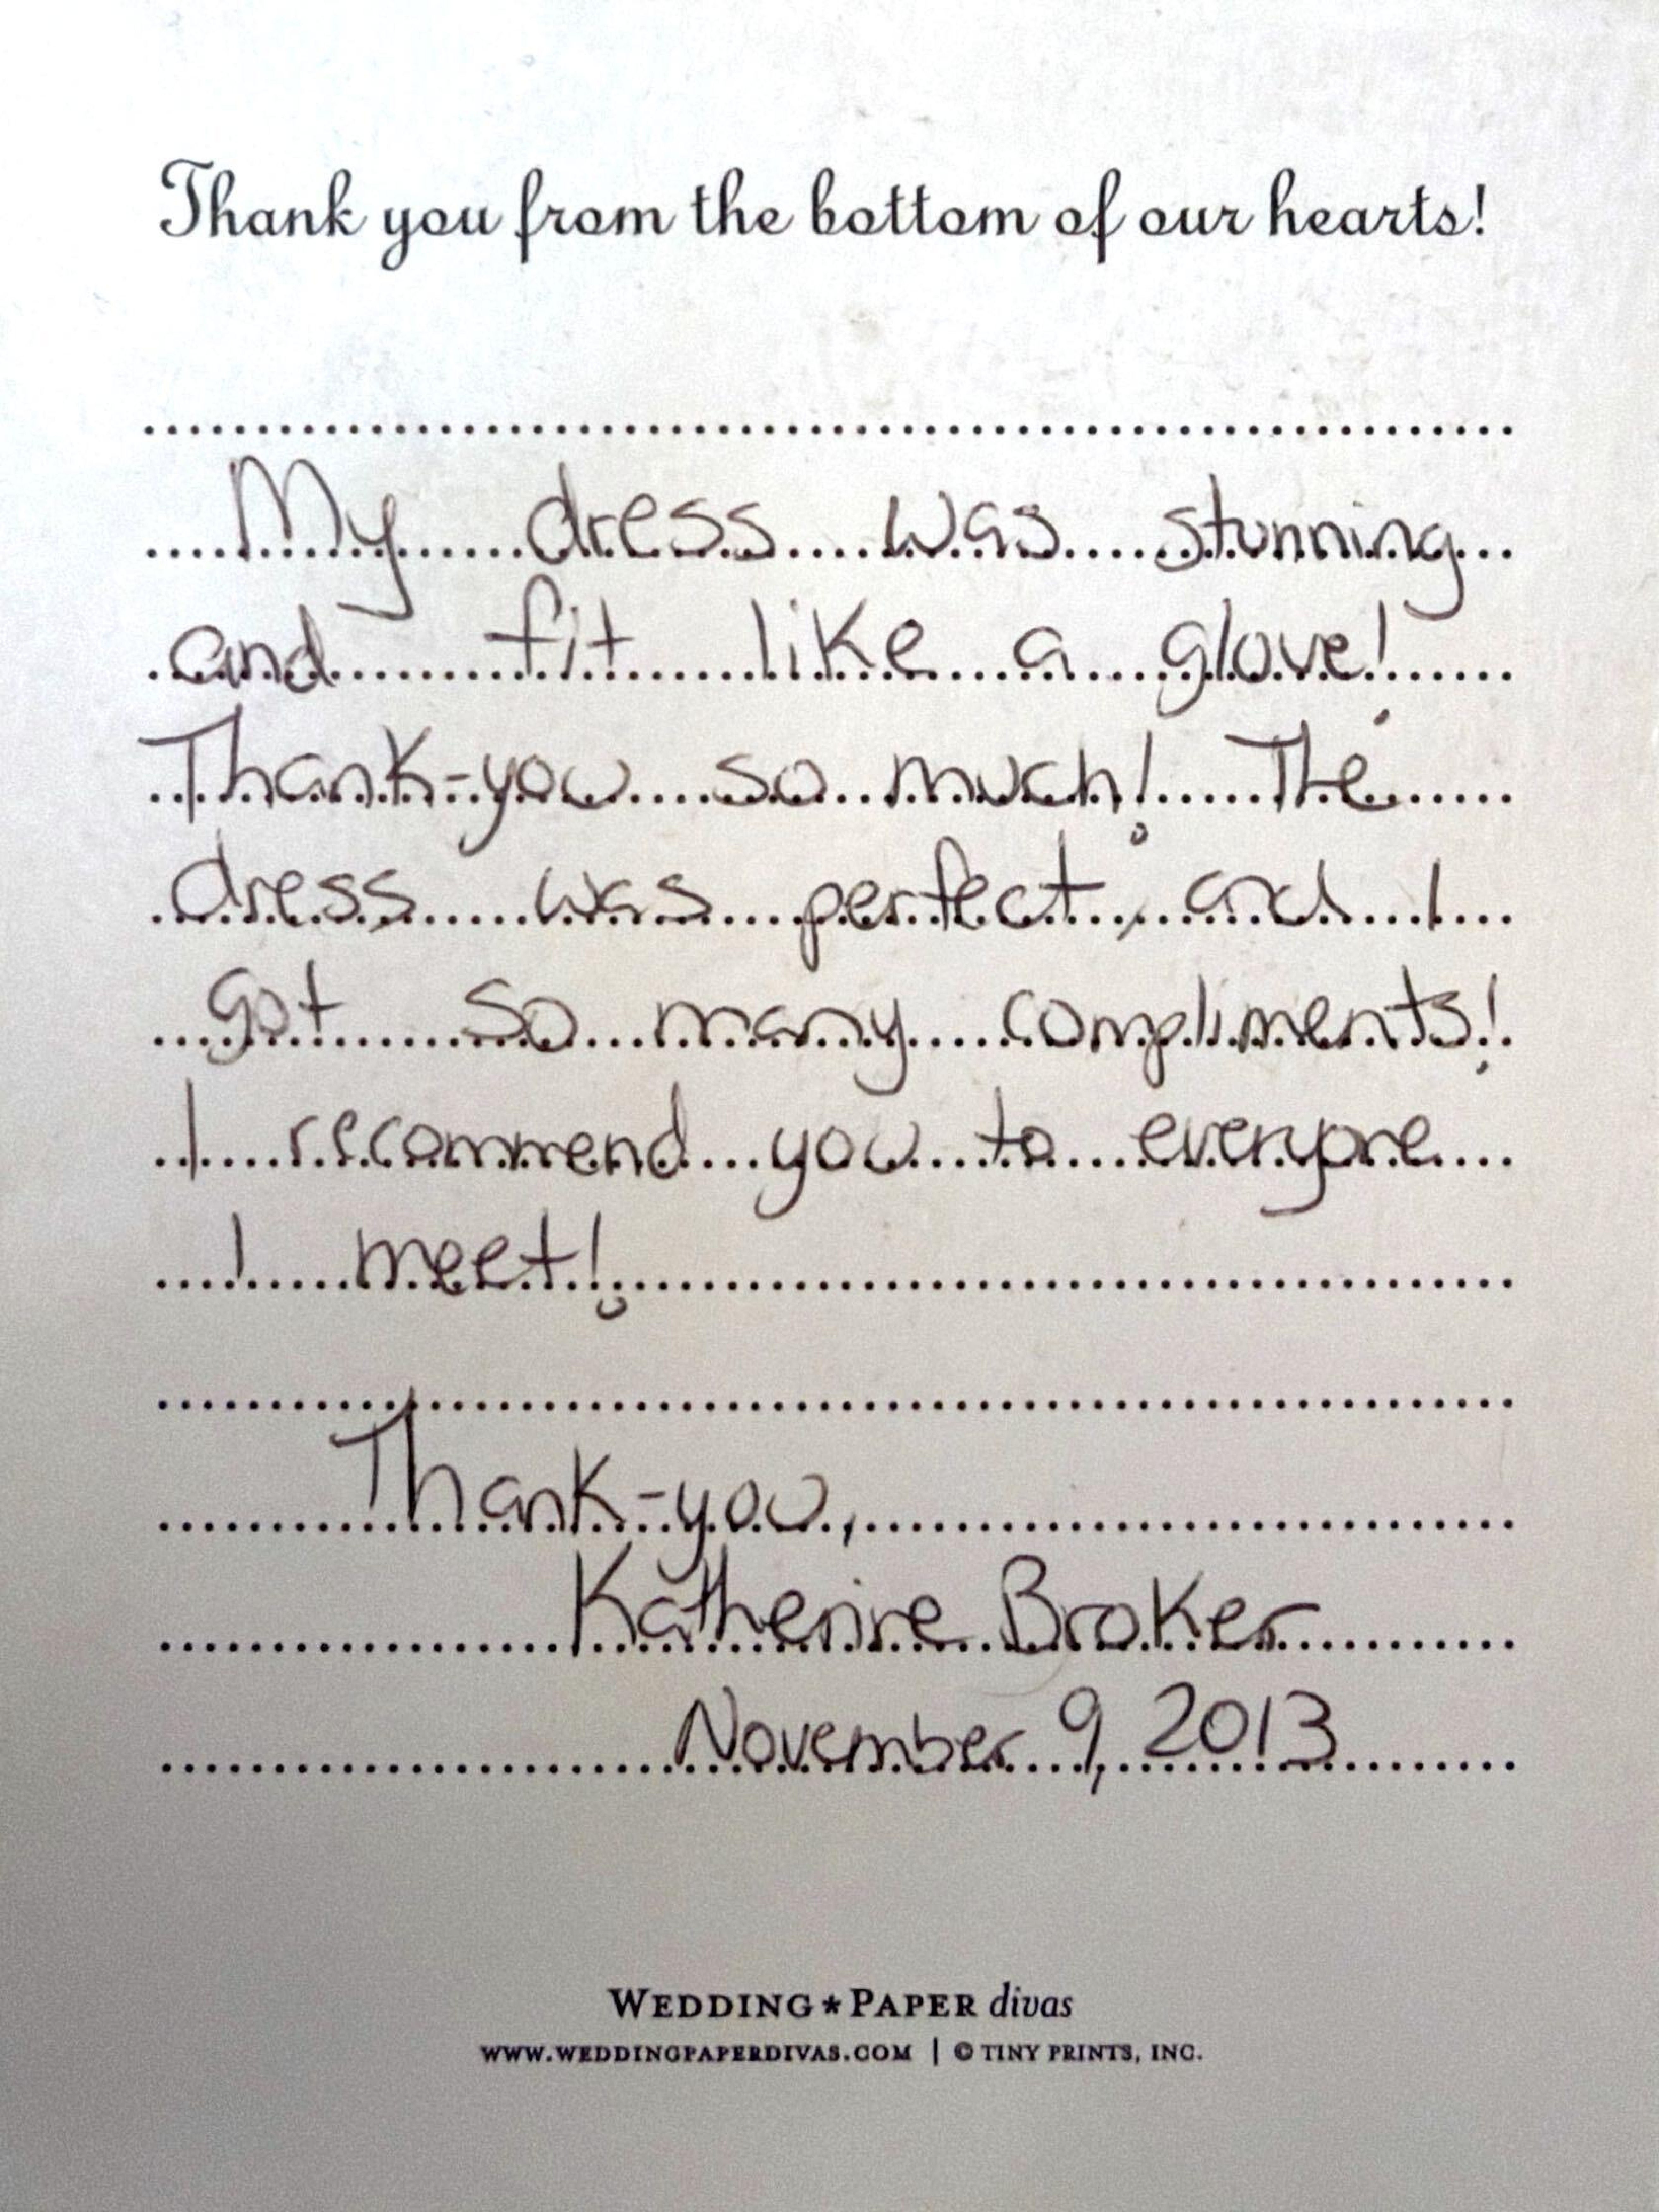 Thank you from the bottom of our hearts!
My dress was stunning
and fit like a glove!
Thank-you so much! The
dress was perfect, and I
got so many compliments!
I recommend you to everyone
I meet!
Thank-you,
Katherine Broker
November 9, 2013
WEDDING★PAPER divas
WWW.WEDDINGPAPERDIVAS.COM | © TINY PRINTS, INC.